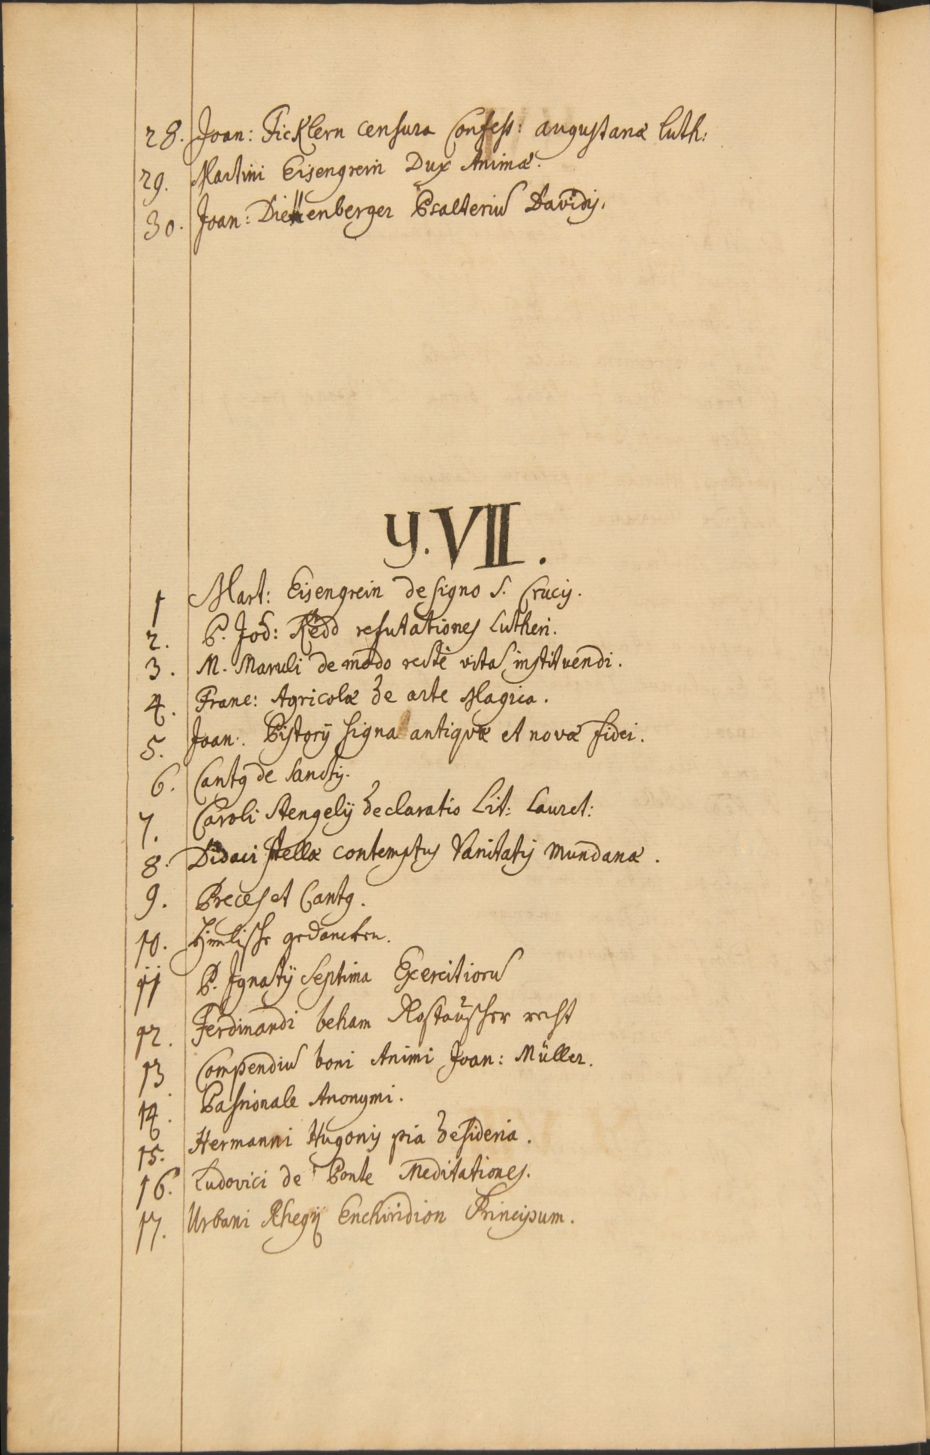 28. Joan: Ficklern censura Confess: augustanæ luth:
29. Martini Eisengrein Dux Animæ.
30. Joan: Dietenberger Psalteriū Davidis.
Y. VII.
1 Mart: Eisengrein de signo S. Crucis.
2. P. Jod: Kedd refutationes Lutheri.
3. M. Maruli de modo recte vitæ instituendi.
4. Franc: Agricolæ de arte Magica.
5. Joan: Pistorij signa antiquæ et novæ fidei.
6. Cantq de Sanctis.
7. Caroli Stengelij declaratio Lit: Lauret:
8. Didaci stellæ contemptus Vanitatis Mundanæ.
9. Preces et Cantq.
10. Himlische gedancken.
11 P. Ignatij Septima Exercitiorū
12. Ferdinandi beham Rostaüscher recht
13 Compendiū boni Animi Joan: Müller.
14. Passionale Anonymi.
15. Hermanni Hugonis pia desideria.
16. Ludovici de Ponte Meditationes.
17. Urbani Rhegij Enchiridion Principum.